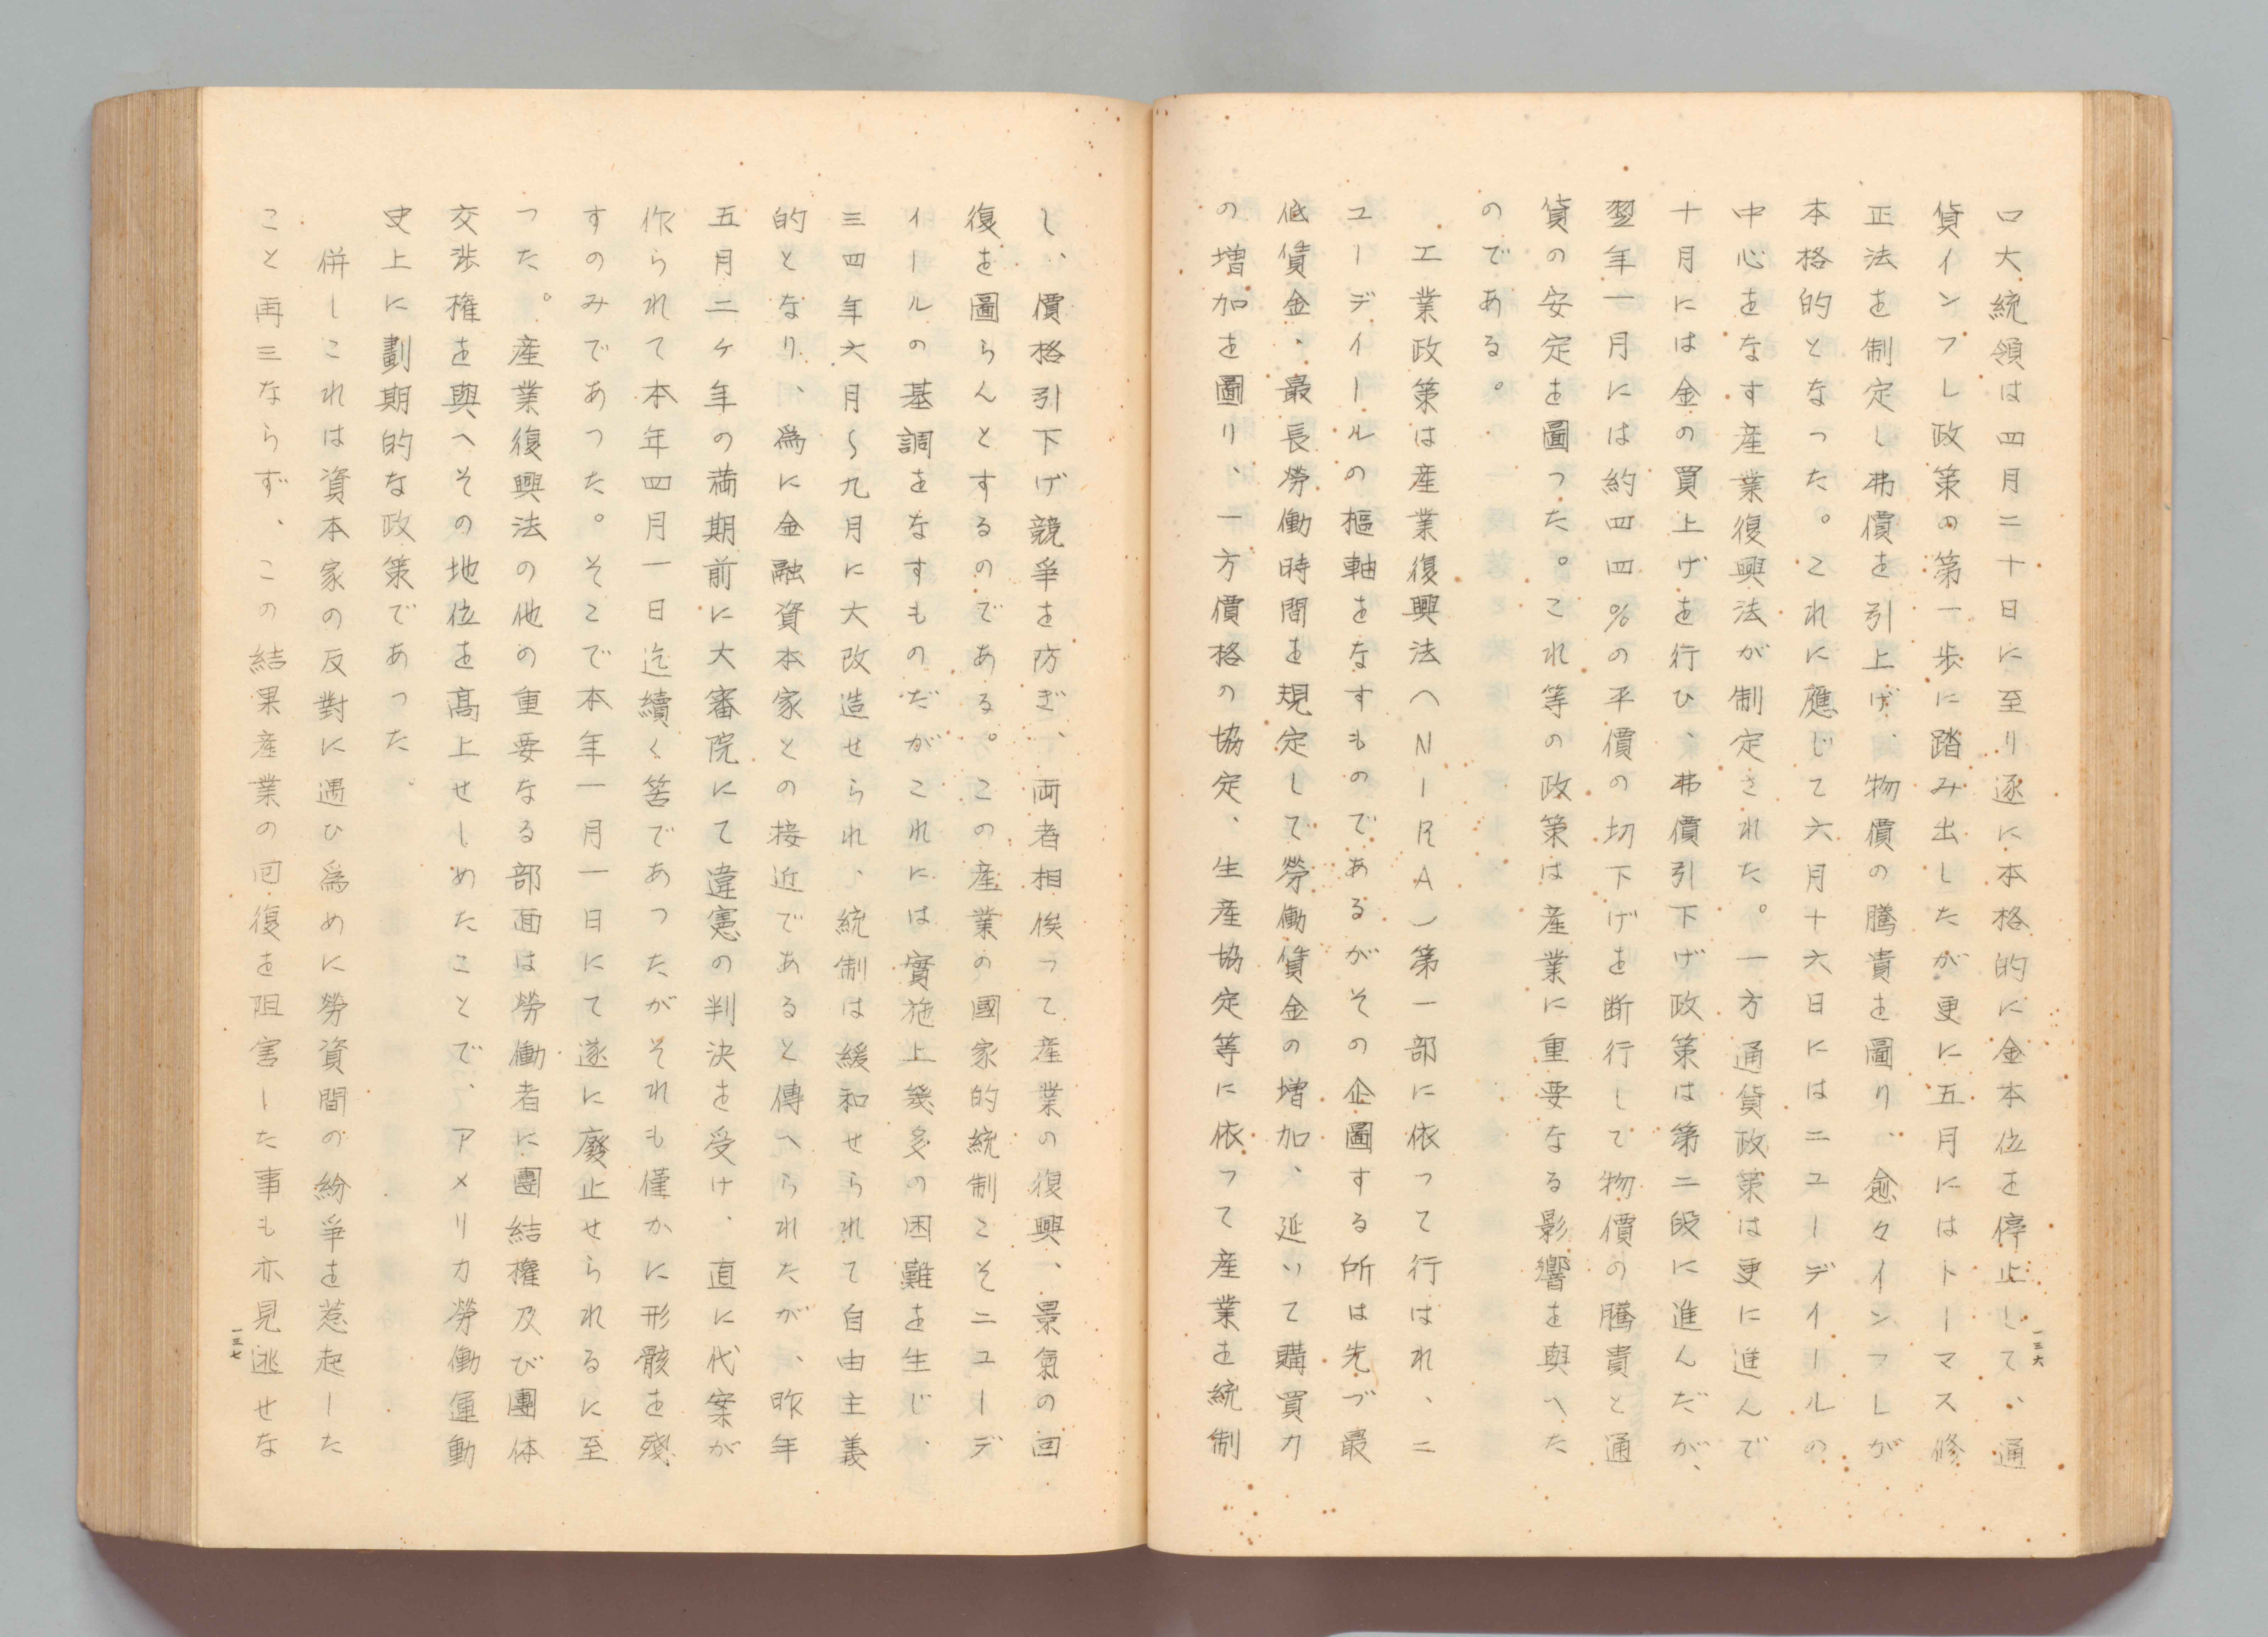 ロ大統領は四月二十日に至り逐に本格的に金本位を停止して、通
貨インフレ政策の第一歩に踏み出したが更に五月にはトーマス修
正法を制定し弗價を引上げ、物價の騰貴を圖り、愈々インフレが
本格的となつた。これに應じて六月十六日にはニユーデイールの
中心をなす産業復興法が制定された。一方通貨政策は更に進んで
十月には金の買上げを行ひ、弗價引下げ政策は第二段に進んだが、
翌年一月には約四四%の平價の切下げを断行して物價の騰貴と通
貨の安定を圖つた。これ等の政策は産業に重要なる影響を與へた
のである。
工業政策は産業復興法(NIRA)第一部に依つて行はれ、ニ
ユーデイールの樞軸をなすものであるがその企圖する所は先づ最
低賃金、最長勞働時間を規定して勞働賃金の増加、延いて購買力
の増加を圖り、一方價格の協定、生産協定等に依つて産業を統制
一三六
し、價格引下げ競爭を防ぎ、両者相俟つて産業の復興、景氣の回
復を圖らんとするのである。この産業の國家的統制こそニユーデ
イールの基調をなすものだがこれには實施上幾多の困難を生じ、
三四年六月〜九月に大改造せられ、統制は緩和せられて自由主義
的となり、爲に金融資本家との接近であると傳へられたが、昨年
五月二ケ年の満期前に大審院にて違憲の判決を受け、直に代案が
作られて本年四月一日迄續く筈であつたがそれも僅かに形骸を殘
すのみであつた。そこで本年一月一日にて遂に廢止せられるに至
つた。産業復興法の他の重要なる部面は勞働者に團結權及び團体
交渉権を與へその地位を高上せしめたことで、アメリカ勞働運動
史上に劃期的な政策であつた。
併しこれは資本家の反對に遇ひ爲めに勞資間の紛爭を惹起した
こと再三ならず、この結果産業の回復を阻害した事も亦見逃せな
一三七